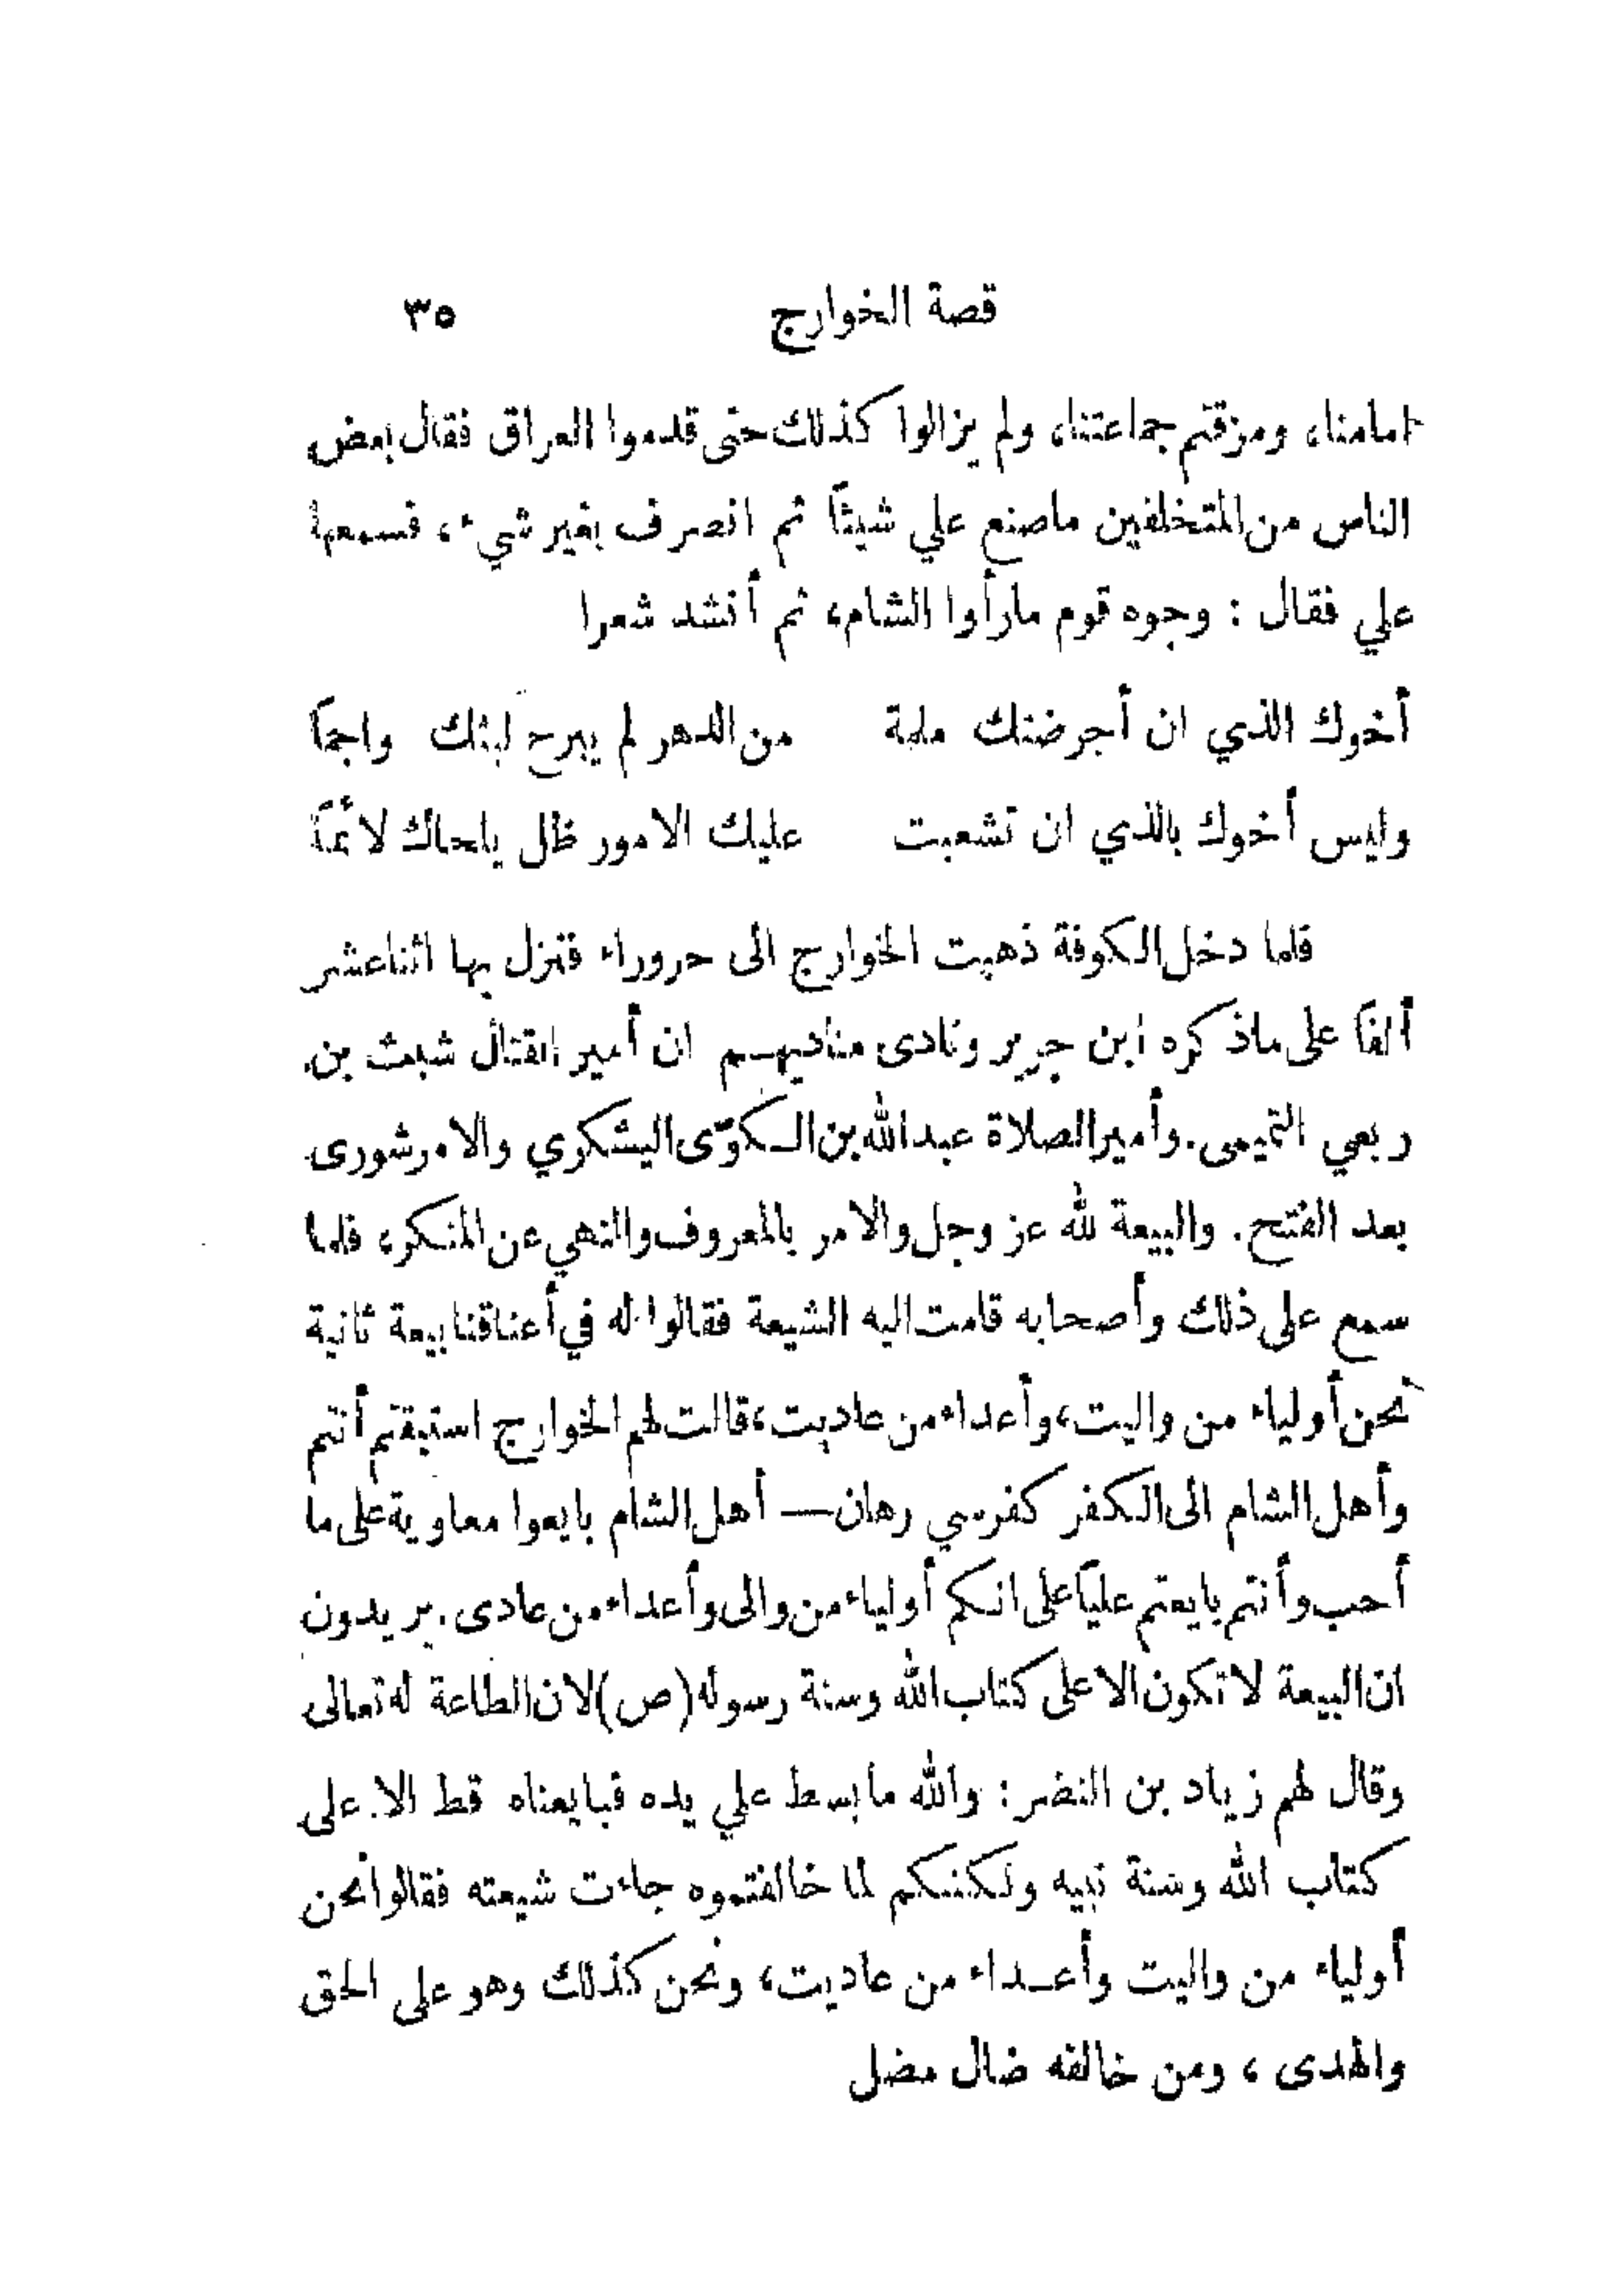 قصة الخوارج ٣٥
امامنا، ومزقتم جماعتنا، ولم يزالوا كذلك حتى قدموا العراق فقال بعض
الناس من المتخلفين ماصنع علي شيئاً ثم انصرف بغير شيء، فسمعها
علي فقال : وجوه قوم مارأوا الشام، ثم أنشد شعرا
أخوك الذي ان أجرضتك ملمة من الدهر لم يبرح لبثك واجماً
وليس أخوك بالذي ان تشعبت عليك الامور ظل يلحاك لائماً
فلما دخل الكوفة ذهبت الخوارج الى حروراء فنزل بها اثناعشر
ألفاً على ماذكره ابن جرير ونادى مناديهم ان أمير القتال شبث بن
ربعي التميمى. وأمير الصلاة عبدالله بن الكوّى اليشكري والامر شورى
بعد الفتح. والبيعة لله عز وجل والامر بالمعروف والنهي عن المنكر، فلما
سمع على ذلك وأصحابه قامت اليه الشيعة فقالوا له في أعناقنا بيعة ثانية
نحن أولياء من واليت، وأعداء من عاديت، قالت لهم الخوارج استبقتم أنتم
وأهل الشام الى الكفر كفرسي رهان — أهل الشام بايعوا معاوية على ما
أحب وأنتم بايعتم علياً على انكم أولياء من والى وأعداء من عادى. يريدون
ان البيعة لا تكون الا على كتاب الله وسنة رسوله (ص) لان الطاعة له تعالى
وقال لهم زياد بن النضر : والله مابسط علي يده فبايعناه قط الا على
كتاب الله وسنة نبيه ولكنكم لما خالفتموه جاءت شيعته فقالوا نحن
أولياء من واليت وأعداء من عاديت، ونحن كذلك وهو على الحق
والهدى ، ومن خالفه ضال مضل